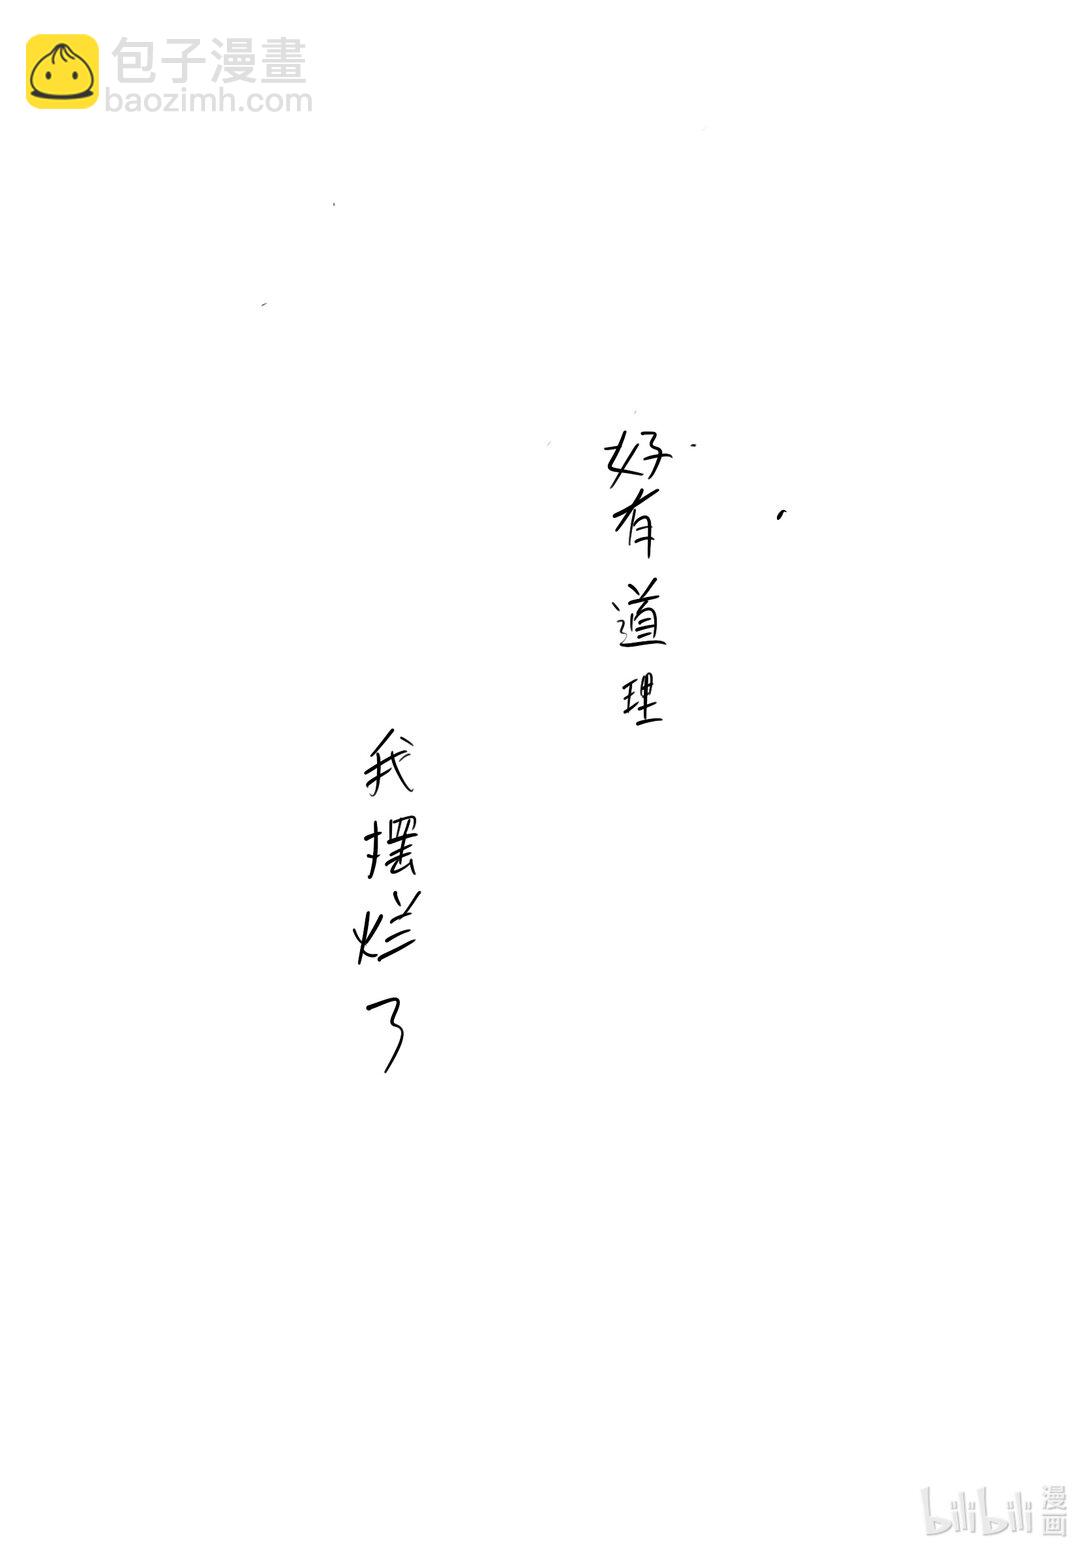 包子漫畫
baozimh.com
好有道理
我摆烂了
bilibili 漫画